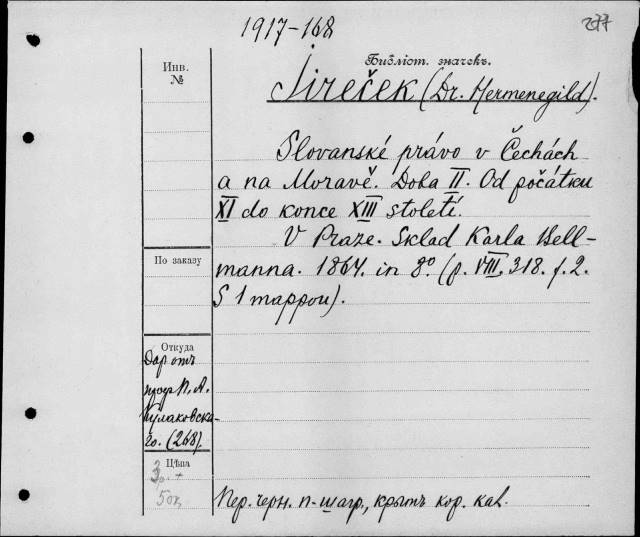 1917-168
277
Инв.
№
Библіот. значекъ.
Jireček (Dr. Hermenegild).
Slovanské právo v Čechách
a na Moravě. Doba II. Od počátku
XI do konce XIII století.
V Praze. Sklad Karla Bell-
manna. 1864. in 8º. (p. VIII. 318. f. 2.
S 1 mappou).
По заказу
Откуда
Даръ отъ
проф. П. А.
Кулаковска-
го. (268).
Цѣна
3 p. +
50к.
Пер. черн. п-шагр., крытъ кор. кал.